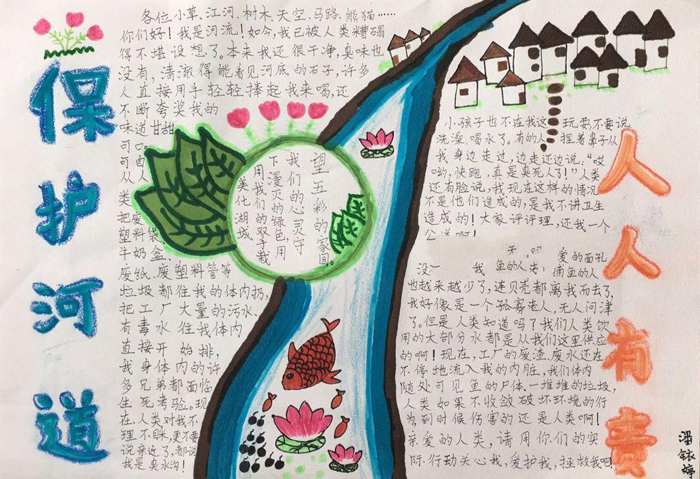 保护河道
人人有责
各位小草、江河、树木、天空、马路、熊猫……
你们好！我是河流！如今，我已被人类糟蹋
得不堪设想了。本来我还很干净，臭味也
没有，清澈得能看见河底的石子，许多
人直接用手轻轻捧起我来喝，还
不断夸奖我的
味道甘甜
可口。
可
从人
类
把废
塑料袋、
牛奶盒、
废纸、废塑料管等
垃圾都往我的体内扔，
把工厂大量的污水、
有毒水往我体内
直接开始排，
我身体内的许
多兄弟都面临
生死考验。现
在，人类对我不
理不睬，更不要
说亲近了，都说
我是臭水沟！
望五彩的家园。
我们的心灵守
下漫灭的绿色，用
用我们的双手栽
类化湖城
小孩子也不在我这 玩耍，不要说
洗澡、喝水了。有的人 捏着鼻子从
我身边走过，边走还边说：“哎
哟，快跑，真是臭死人了！”人类
还有脸说，我现在这样的情况
不是他们造成的，是我不讲卫生
造成的！大家评评理，还我一个
公道啊！
爱的面孔
没 我 鱼的人类 捕鱼的人
也越来越少了，连贝壳都离我而去了，
我好像是一个孤寡老人，无人问津
了。但是人类知道吗？我们人类饮
用的大部分水都是从我们这里供应
的啊！现在，工厂的废渣、废水还在
不停地流入我的内脏，我们体内
随处可见鱼的尸体，一堆堆的垃圾，
人类如果不收敛破坏环境的行
为，到时候伤害的还是人类啊！
亲爱的人类，请用你们的实
际行动关心我，爱护我，拯救我吧！